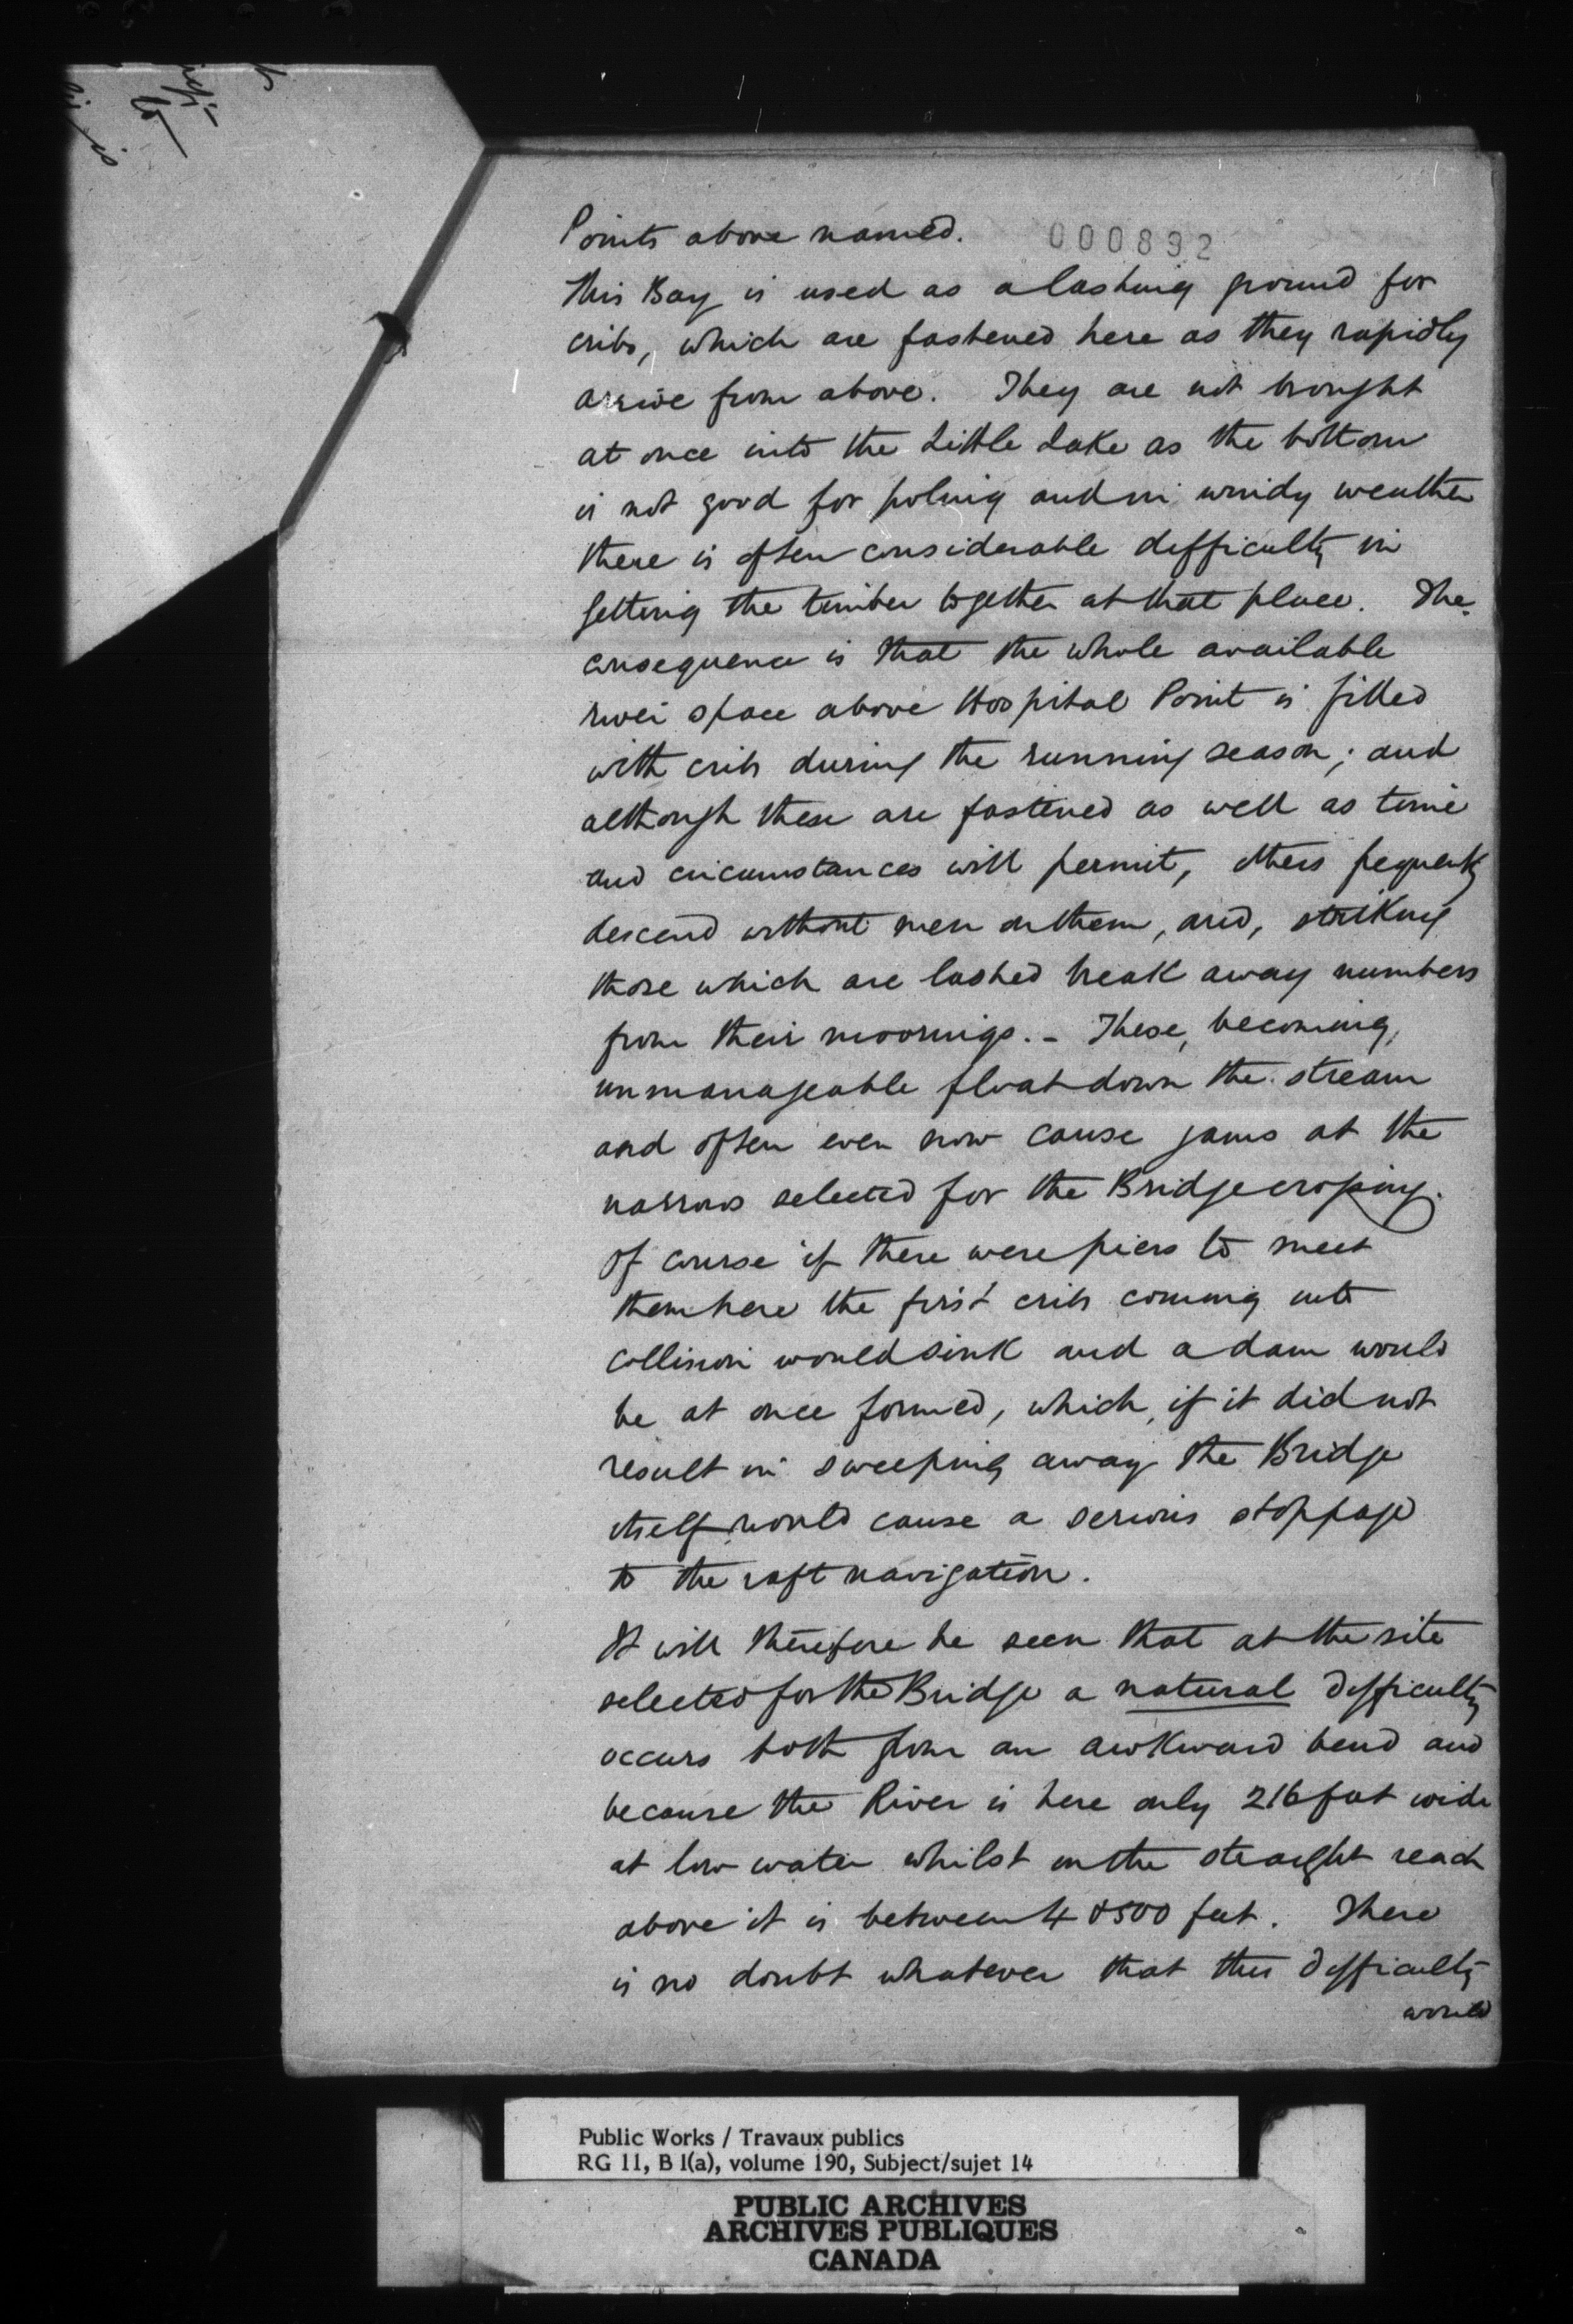 Points above named.
000892
This Bay is used as a lashing ground for
cribs, which are fastened here as they rapidly
arrive from above. They are not brought
at once into the Little Lake as the bottom
is not good for poling and in windy weather
there is often considerable difficulty in
getting the timber together at that place. The
consequence is that the whole available
river space above Hospital Point is filled
with cribs during the running season; and
although these are fastened as well as time
and circumstances will permit, others frequently
descend without men on them, and, striking
those which are lashed break away numbers
from their moorings. - These, becoming,
unmanageable float down the stream
and often even now cause jams at the
narrows selected for the Bridge crossing.
Of course if there were piers to meet
them here the first crib coming into
collision would sink and a dam would
be at once formed, which, if it did not
result in sweeping away the Bridge
itself would cause a serious stoppage
to the raft navigation.
It will therefore be seen that at the site
selected for the Bridge a natural difficulty
occurs both from an awkward bend and
because the River is here only 216 feet wide
at low water whilst on the straight reach
above it is between 4 & 500 feet. There
is no doubt whatever that this difficulty
would
Public Works / Travaux publics
RG 11, B 1(a), volume 190, Subject/sujet 14
PUBLIC ARCHIVES
ARCHIVES PUBLIQUES
CANADA